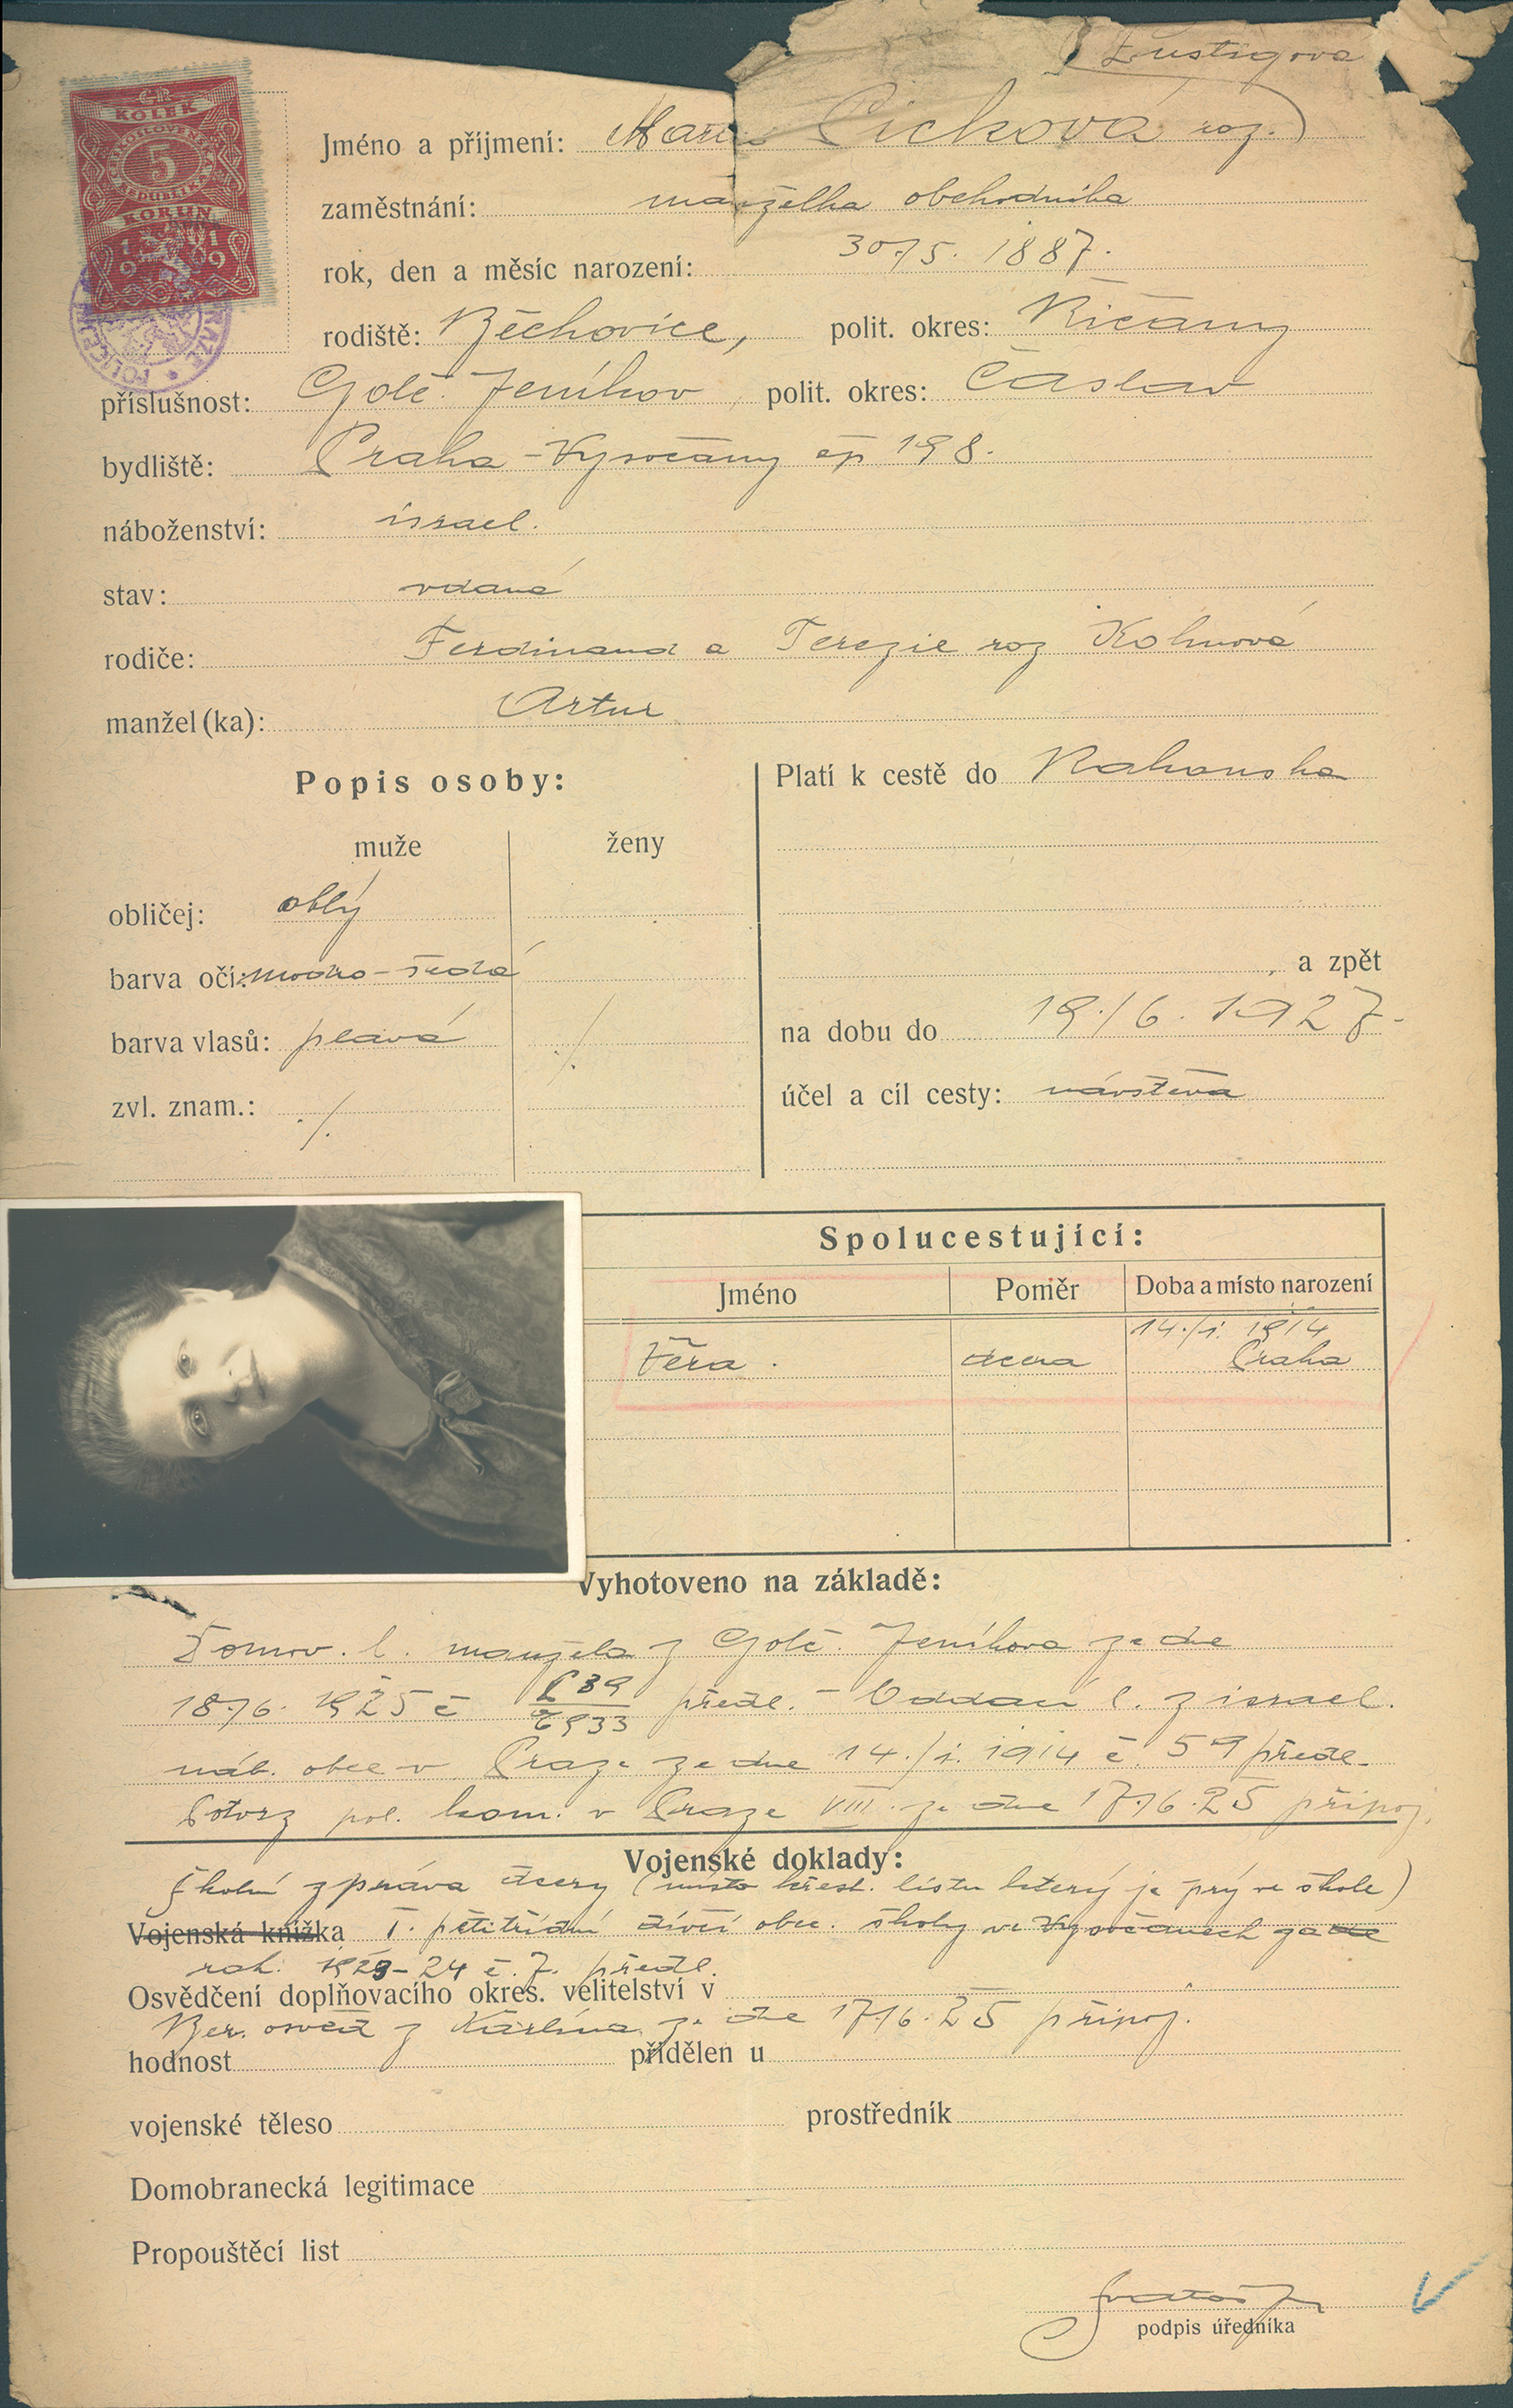 Lustigova
Jméno a příjmení: Marie Picková roz.
zaměstnání: manželka obchodníka
rok, den a měsíc narození: 30/5. 1887.
rodiště: Běchovice, polit. okres: Říčany
příslušnost: Golč. Jeníkov, polit. okres: Čáslav
bydliště: Praha - Vysočany čp 198.
náboženství: israel.
stav: vdaná
rodiče: Ferdinand a Terezie roz Kohnová
manžel(ka): Artur
KOLEK
ČESKOSLOVENSKÁ
5
REPUBLIKA
KORUN
1919
Popis osoby:
muže ženy
obličej: oblý
barva očí: modro-šedá
barva vlasů: plavá ./.
zvl. znam.: ./.
Platí k cestě do Rakouska
, a zpět
na dobu do 19./6. 1927.
účel a cíl cesty: návštěva
Spolucestující:
Jméno Poměr Doba a místo narození
14./1. 1914
Věra. dcera Praha
Vyhotoveno na základě:
Domov. l. manžela z Golč. Jeníkova ze dne
18/6. 1925 č předl. - Oddací l. z israel.
náb. obce v Praze ze dne 14./1. 1914 č. 59 předl.
Potvrz pol. kom. v Praze VIII. ze dne 17/6.25 připoj.
Vojenské doklady:
Školní zpráva dcery (místo křest. listu který je prý ve škole)
Vojenská knížka I. pětitřídní dívčí obec. školy ve Vysočanech za
rok. 1923-24 č. 7. předl.
Osvědčení doplňovacího okres. velitelství v
Ber. osvěd z Karlína ze dne 17/6.25 připoj.
hodnost přidělen u
vojenské těleso prostředník
Domobranecká legitimace
Propouštěcí list
podpis úředníka